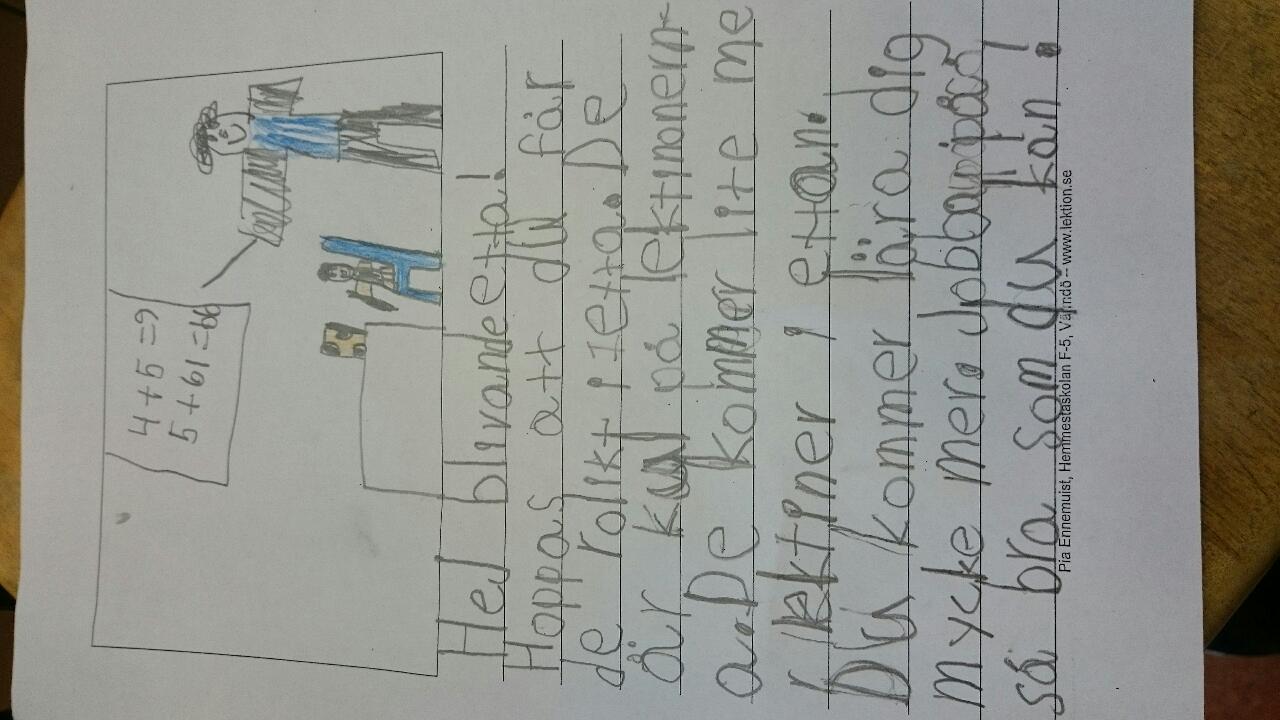 4+5=9
5+61=66
Hej blivande etta!
Hoppas att du får
de rolikt i etta. De
är kul på lektinonern
a. De kommer lite me
r lektiner i ettan.
Du kommer lära dig
mycke mer. Jobba på
så bra som du kan!
Pia Ennemuist, Hemmestaskolan F-5, Värmdö -- www.lektion.se